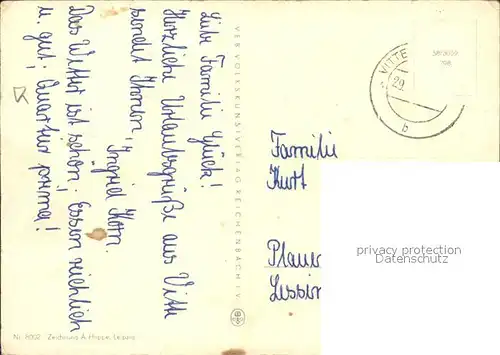 Liebe Familie Glück!
Herzliche Urlaubsgrüße aus Vitte
sendet Ihnen,
Ingrid Korn.
Das Wetter ist schön; Essen reichlich
u. gut; Quartier prima!
VEB VOLKSKUNSTVERLAG REICHENBACH I.V.
VITTE
29
b
Familie
Kurt
Plauen
Lessin
privacy protection
Datenschutz
Nr. 8002 Zeichnung A. Hoppe, Leipzig